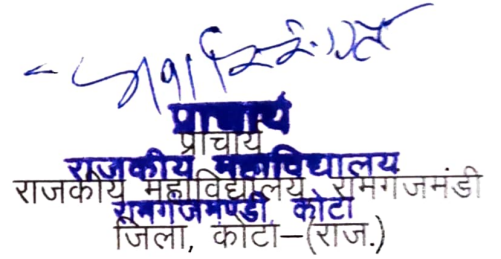 प्राचार्य
प्राचार्य
राजकीय महाविद्यालय
राजकीय महाविद्यालय, रामगंजमंडी
रामगंजमण्डी, कोटा
जिला, कोटा–(राज.)